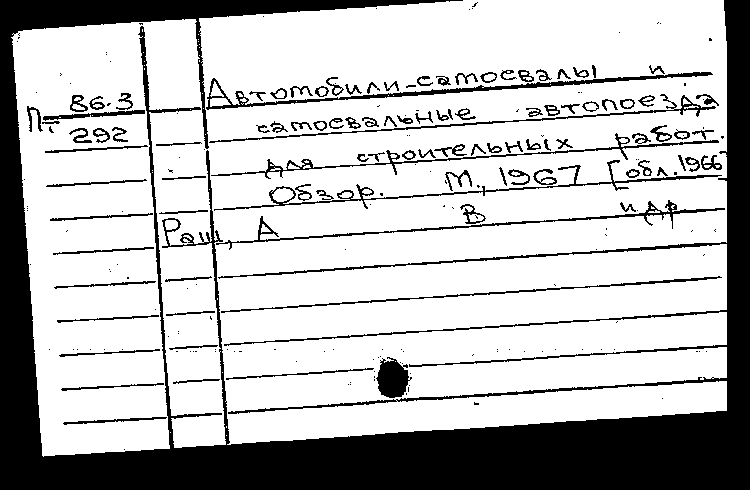 86.3 Автомобили-самосвалы и
Пт 292 самосвальные автопоезда
для строительных работ.
Обзор. М., 1967 [обл. 1966
Раш, А В и др